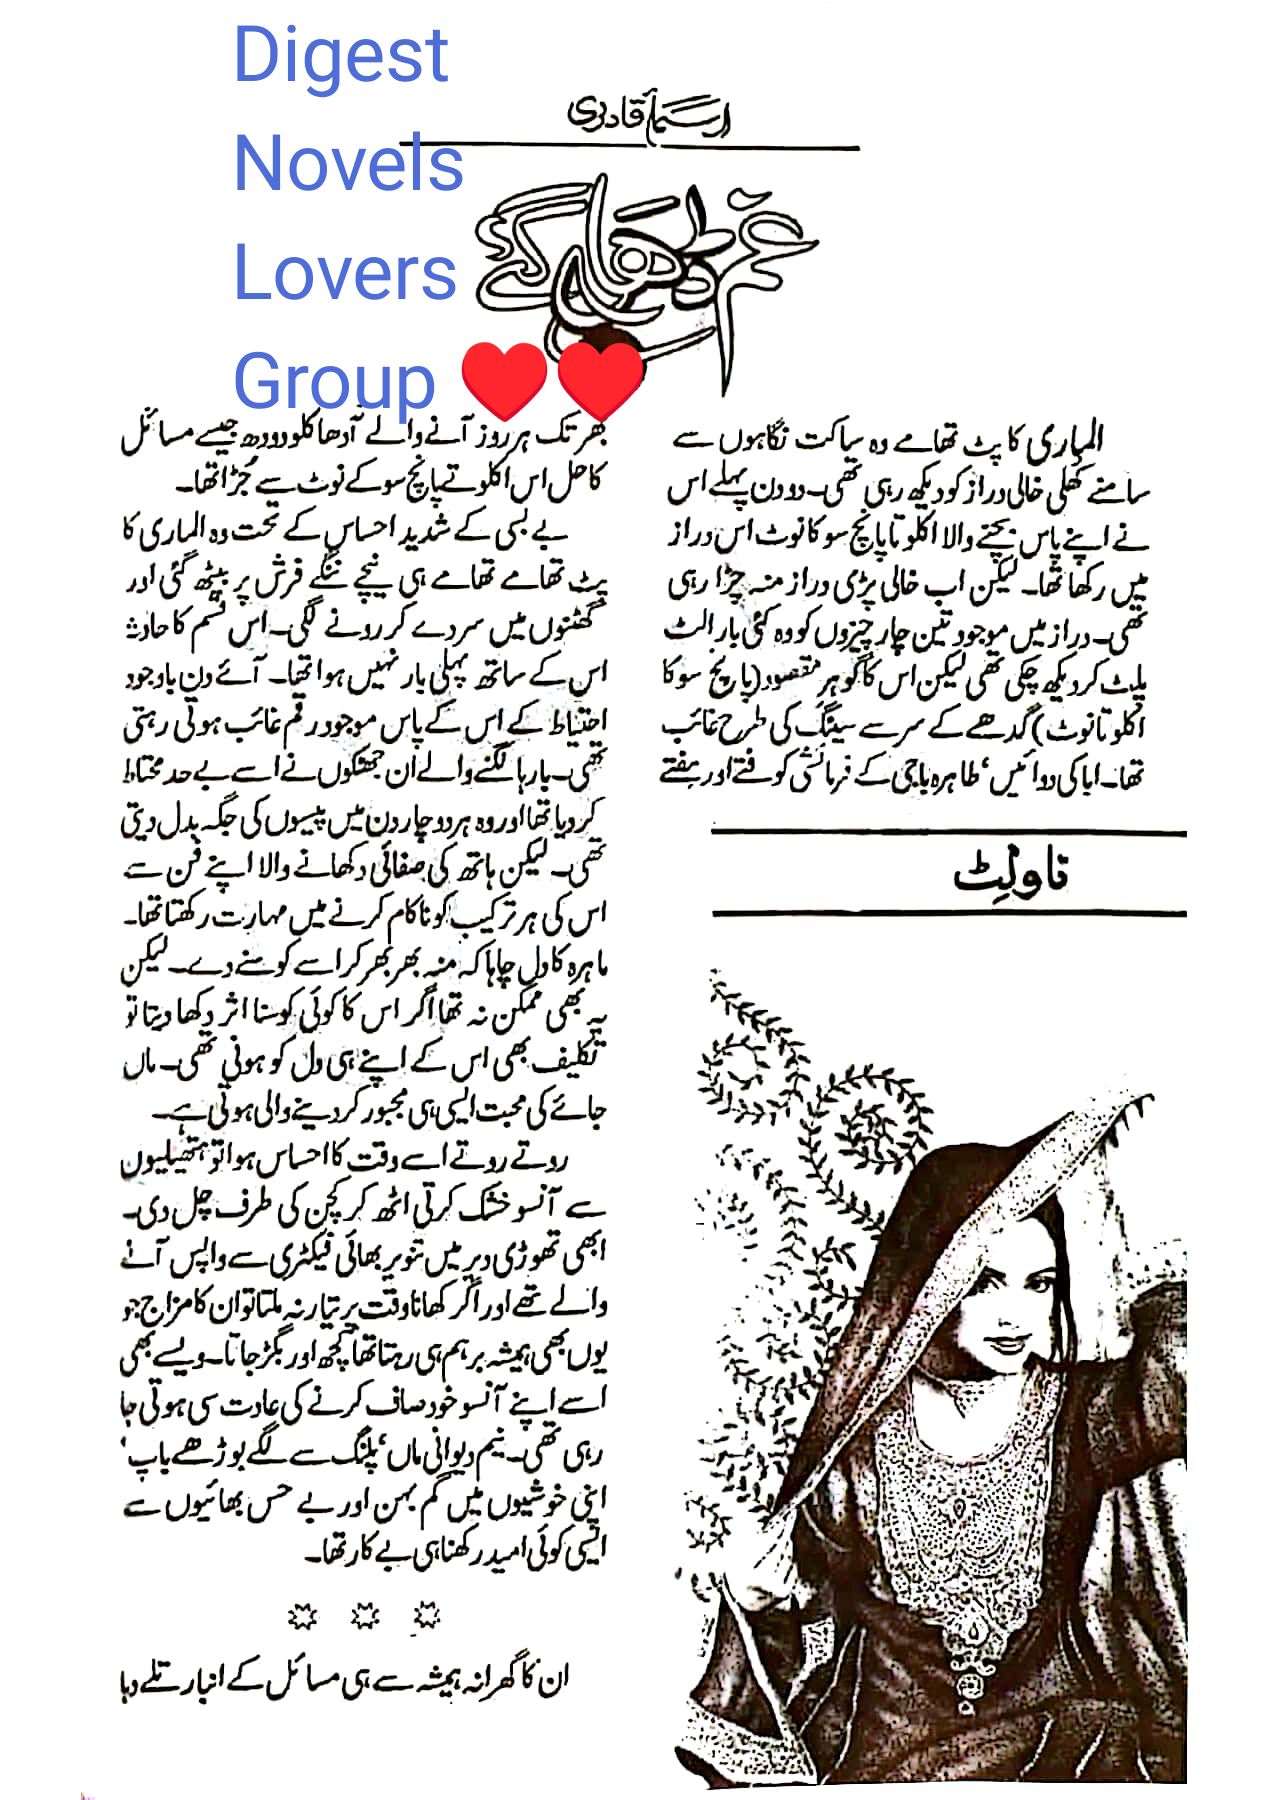 Digest
Novels
Lovers
Group ❤️❤️
اسماء قادری
المباری کا پٹ تھامے وہ ساکت نگاہوں سے
سامنے کھلی خالی دراز کو دیکھ رہی تھی۔ دو دن پہلے اس
نے اپنے پاس بچنے والا اکلوتا پانچ سو کا نوٹ اس دراز
میں رکھا تھا۔ لیکن اب خالی پڑی دراز منہ چڑا رہی
تھی۔ دراز میں موجود تین چار چیزوں کو وہ کئی بار الٹ
پلٹ کر دیکھ چکی تھی لیکن اس کا گوہر مقصود (پانچ سو کا
اکلوتا نوٹ) گدھے کے سر سے سینگ کی طرح غائب
تھا۔ ابا کی دوائیں، طاہرہ باجی کے فرمائشی کوفتے اور ہفتے
ناولٹ
بھر تک ہر روز آنے والے آدھا کلو دودھ جیسے مسائل
کا حل اس اکلوتے پانچ سو کے نوٹ سے جُڑا تھا۔
بے بسی کے شدید احساس کے تحت وہ الماری کا
پٹ تھامے تھامے ہی نیچے ننگے فرش پر بیٹھ گئی اور
گھٹنوں میں سر دے کر رونے لگی۔ اس قسم کا حادثہ
اس کے ساتھ پہلی بار نہیں ہوا تھا۔ آئے دن باوجود
احتیاط کے اس کے پاس موجود رقم غائب ہوتی رہتی
تھی۔ بارہا لگنے والے ان جھٹکوں نے اسے بے حد محتاط
کر دیا تھا اور وہ ہر دو چار دن میں پیسوں کی جگہ بدل دیتی
تھی۔ لیکن ہاتھ کی صفائی دکھانے والا اپنے فن سے
اس کی ہر ترکیب کو ناکام کرنے میں مہارت رکھتا تھا۔
ماہرہ کا دل چاہا کہ منہ بھر بھر کر اسے کوسنے دے۔ لیکن
یہ بھی ممکن نہ تھا اگر اس کا کوئی کوسنا اثر دکھا دیتا تو
تکلیف بھی اس کے اپنے ہی دل کو ہونی تھی۔ ماں
جائے کی محبت ایسی ہی مجبور کر دینے والی ہوتی ہے۔
روتے روتے اسے وقت کا احساس ہوا تو ہتھیلیوں
سے آنسو خشک کرتی اٹھ کر کچن کی طرف چل دی۔
ابھی تھوڑی دیر میں تنویر بھائی فیکٹری سے واپس آنے
والے تھے اور اگر کھانا وقت پر تیار نہ ملتا تو ان کا مزاج جو
یوں بھی ہمیشہ برہم ہی رہتا تھا کچھ اور بگڑ جاتا۔ ویسے بھی
اسے اپنے آنسو خود صاف کرنے کی عادت سی ہوتی جا
رہی تھی۔ نیم دیوانی ماں، پلنگ سے لگے بوڑھے باپ،
اپنی خوشیوں میں گم بہن اور بے حس بھائیوں سے
ایسی کوئی امید رکھنا ہی بے کار تھا۔
ان کا گھرانہ ہمیشہ سے ہی مسائل کے انبار تلے دبا